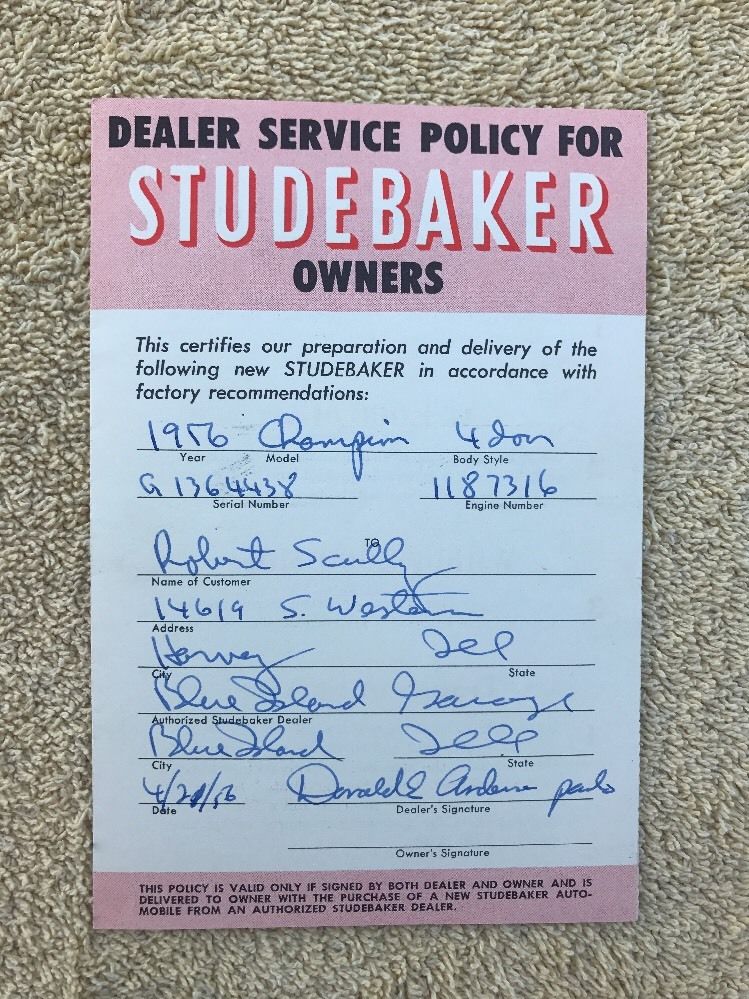 DEALER SERVICE POLICY FOR
STUDEBAKER
OWNERS
This certifies our preparation and delivery of the
following new STUDEBAKER in accordance with
factory recommendations:
1956 Champion 4 door
Year Model Body Style
G 1364438 1187316
Serial Number Engine Number
TO
Robert Scully
Name of Customer
14619 S. Western
Address
Harvey Ill
City State
Blue Island Garage
Authorized Studebaker Dealer
Blue Island Ill
City State
4/21/56 Donald E
Date Dealer's Signature
Owner's Signature
THIS POLICY IS VALID ONLY IF SIGNED BY BOTH DEALER AND OWNER AND IS
DELIVERED TO OWNER WITH THE PURCHASE OF A NEW STUDEBAKER AUTO-
MOBILE FROM AN AUTHORIZED STUDEBAKER DEALER.